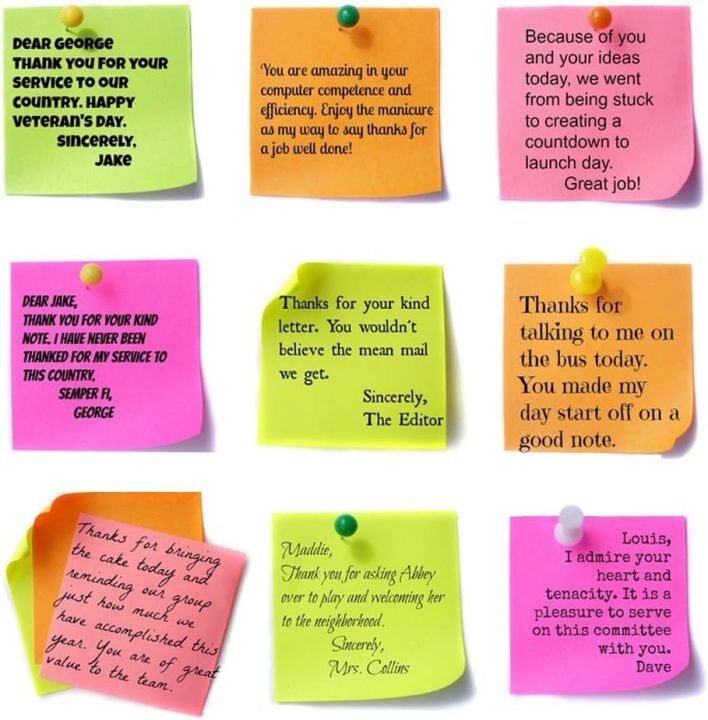 Dear George
Thank you for your
service to our
country. Happy
Veteran's Day.
Sincerely,
Jake
You are amazing in your
computer competence and
efficiency. Enjoy the manicure
as my way to say thanks for
a job well done!
Because of you
and your ideas
today, we went
from being stuck
to creating a
countdown to
launch day.
Great job!
DEAR JAKE,
THANK YOU FOR YOUR KIND
NOTE. I HAVE NEVER BEEN
THANKED FOR MY SERVICE TO
THIS COUNTRY.
SEMPER FI,
GEORGE
Thanks for your kind
letter. You wouldn't
believe the mean mail
we get.
Sincerely,
The Editor
Thanks for
talking to me on
the bus today.
You made my
day start off on a
good note.
Thanks for bringing
the cake today and
reminding our group
just how much we
have accomplished this
year. You are of great
value to the team.
Maddie,
Thank you for asking Abbey
over to play and welcoming her
to the neighborhood.
Sincerely,
Mrs. Collins
Louis,
I admire your
heart and
tenacity. It is a
pleasure to serve
on this committee
with you.
Dave